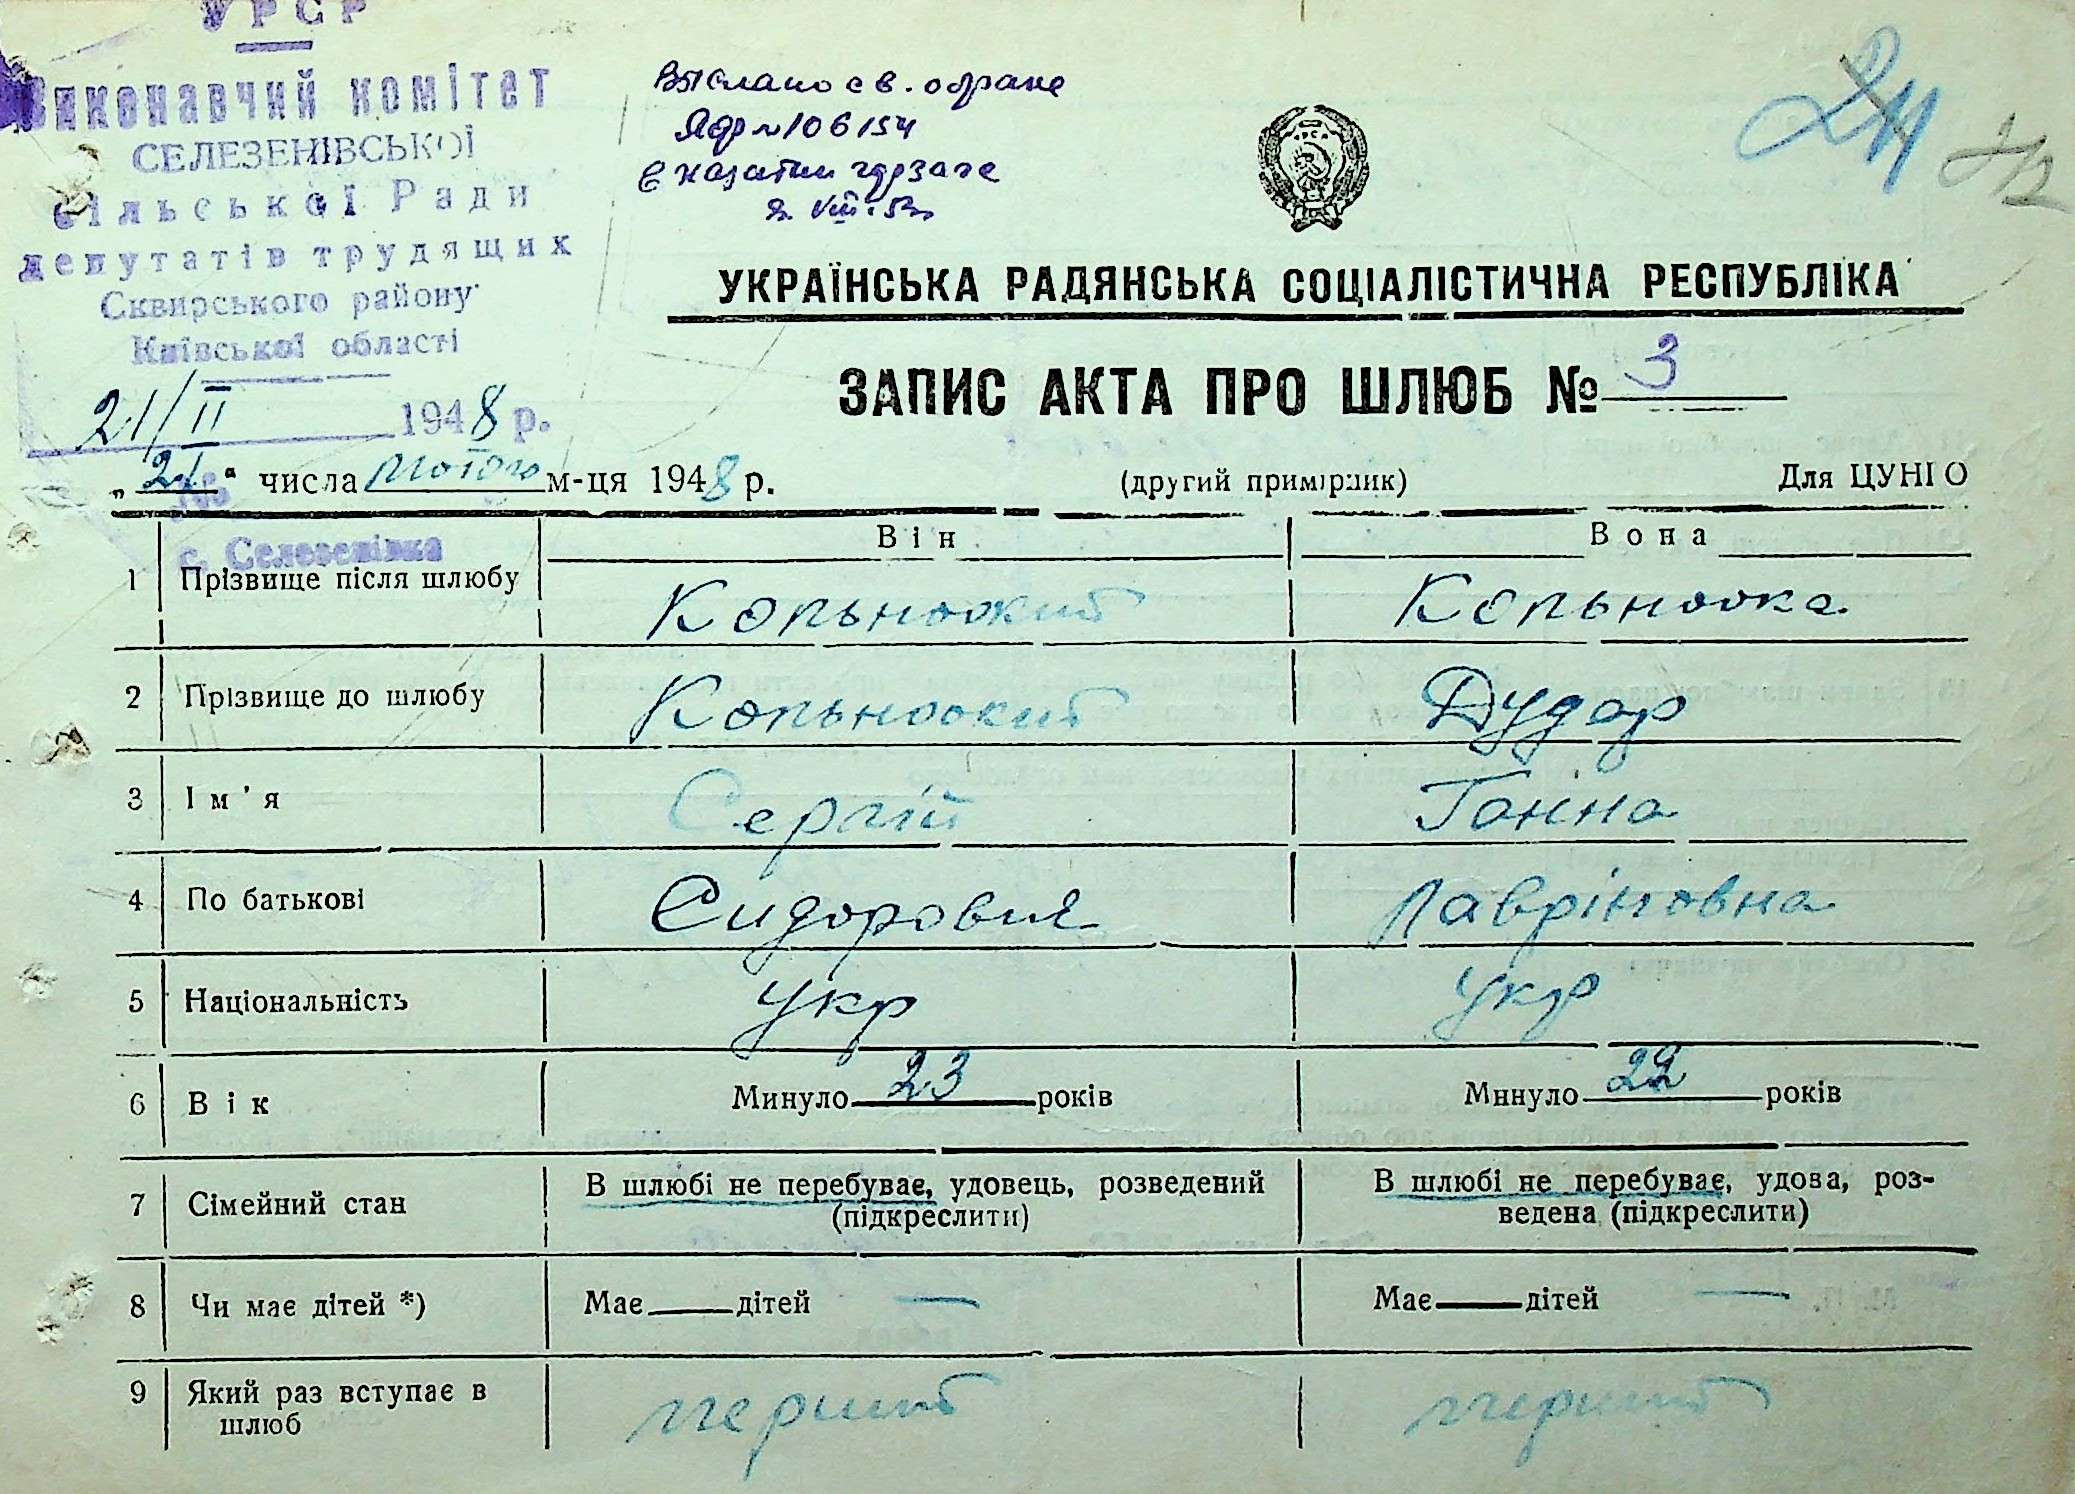 УРСР
Виконавчий комітет
СЕЛЕЗЕНІВСЬКОЇ
сільської Ради
депутатів трудящих
Сквирського району
Київської області
21/II 1948 р.
с. Селезенівка
Вислано св. о браке
№ 106154
УКРАЇНСЬКА РАДЯНСЬКА СОЦІАЛІСТИЧНА РЕСПУБЛІКА
ЗАПИС АКТА ПРО ШЛЮБ № 3
„21“ числа лютого м-ця 1948 р. (другий примірник) Для ЦУНГО
Він Вона
1 Прізвище після шлюбу Копьноокий Копьноока
2 Прізвище до шлюбу Копьноокий Дудар
3 Ім'я Сергій Ганна
4 По батькові Сидорович Лавріновна
5 Національність Укр Укр
6 Вік Минуло 23 років Минуло 22 років
7 Сімейний стан В шлюбі не перебуває, удовець, розведений (підкреслити) В шлюбі не перебуває, удова, роз-
ведена (підкреслити)
8 Чи має дітей *) Має — дітей — Має — дітей —
9 Який раз вступає в перший перший
шлюб